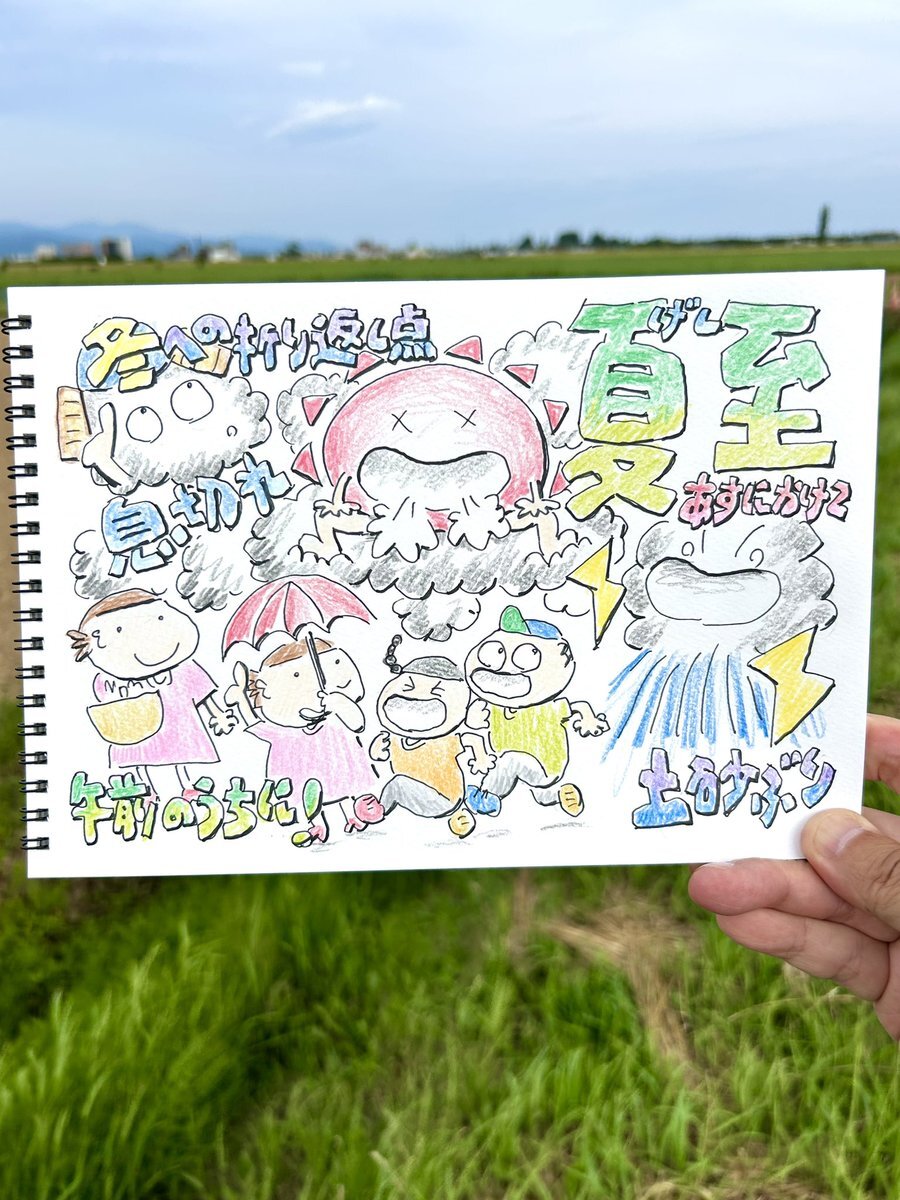 冬への折り返し点
息切れ
夏至
げし
あすにかけて
土砂ぶり
午前のうちに!